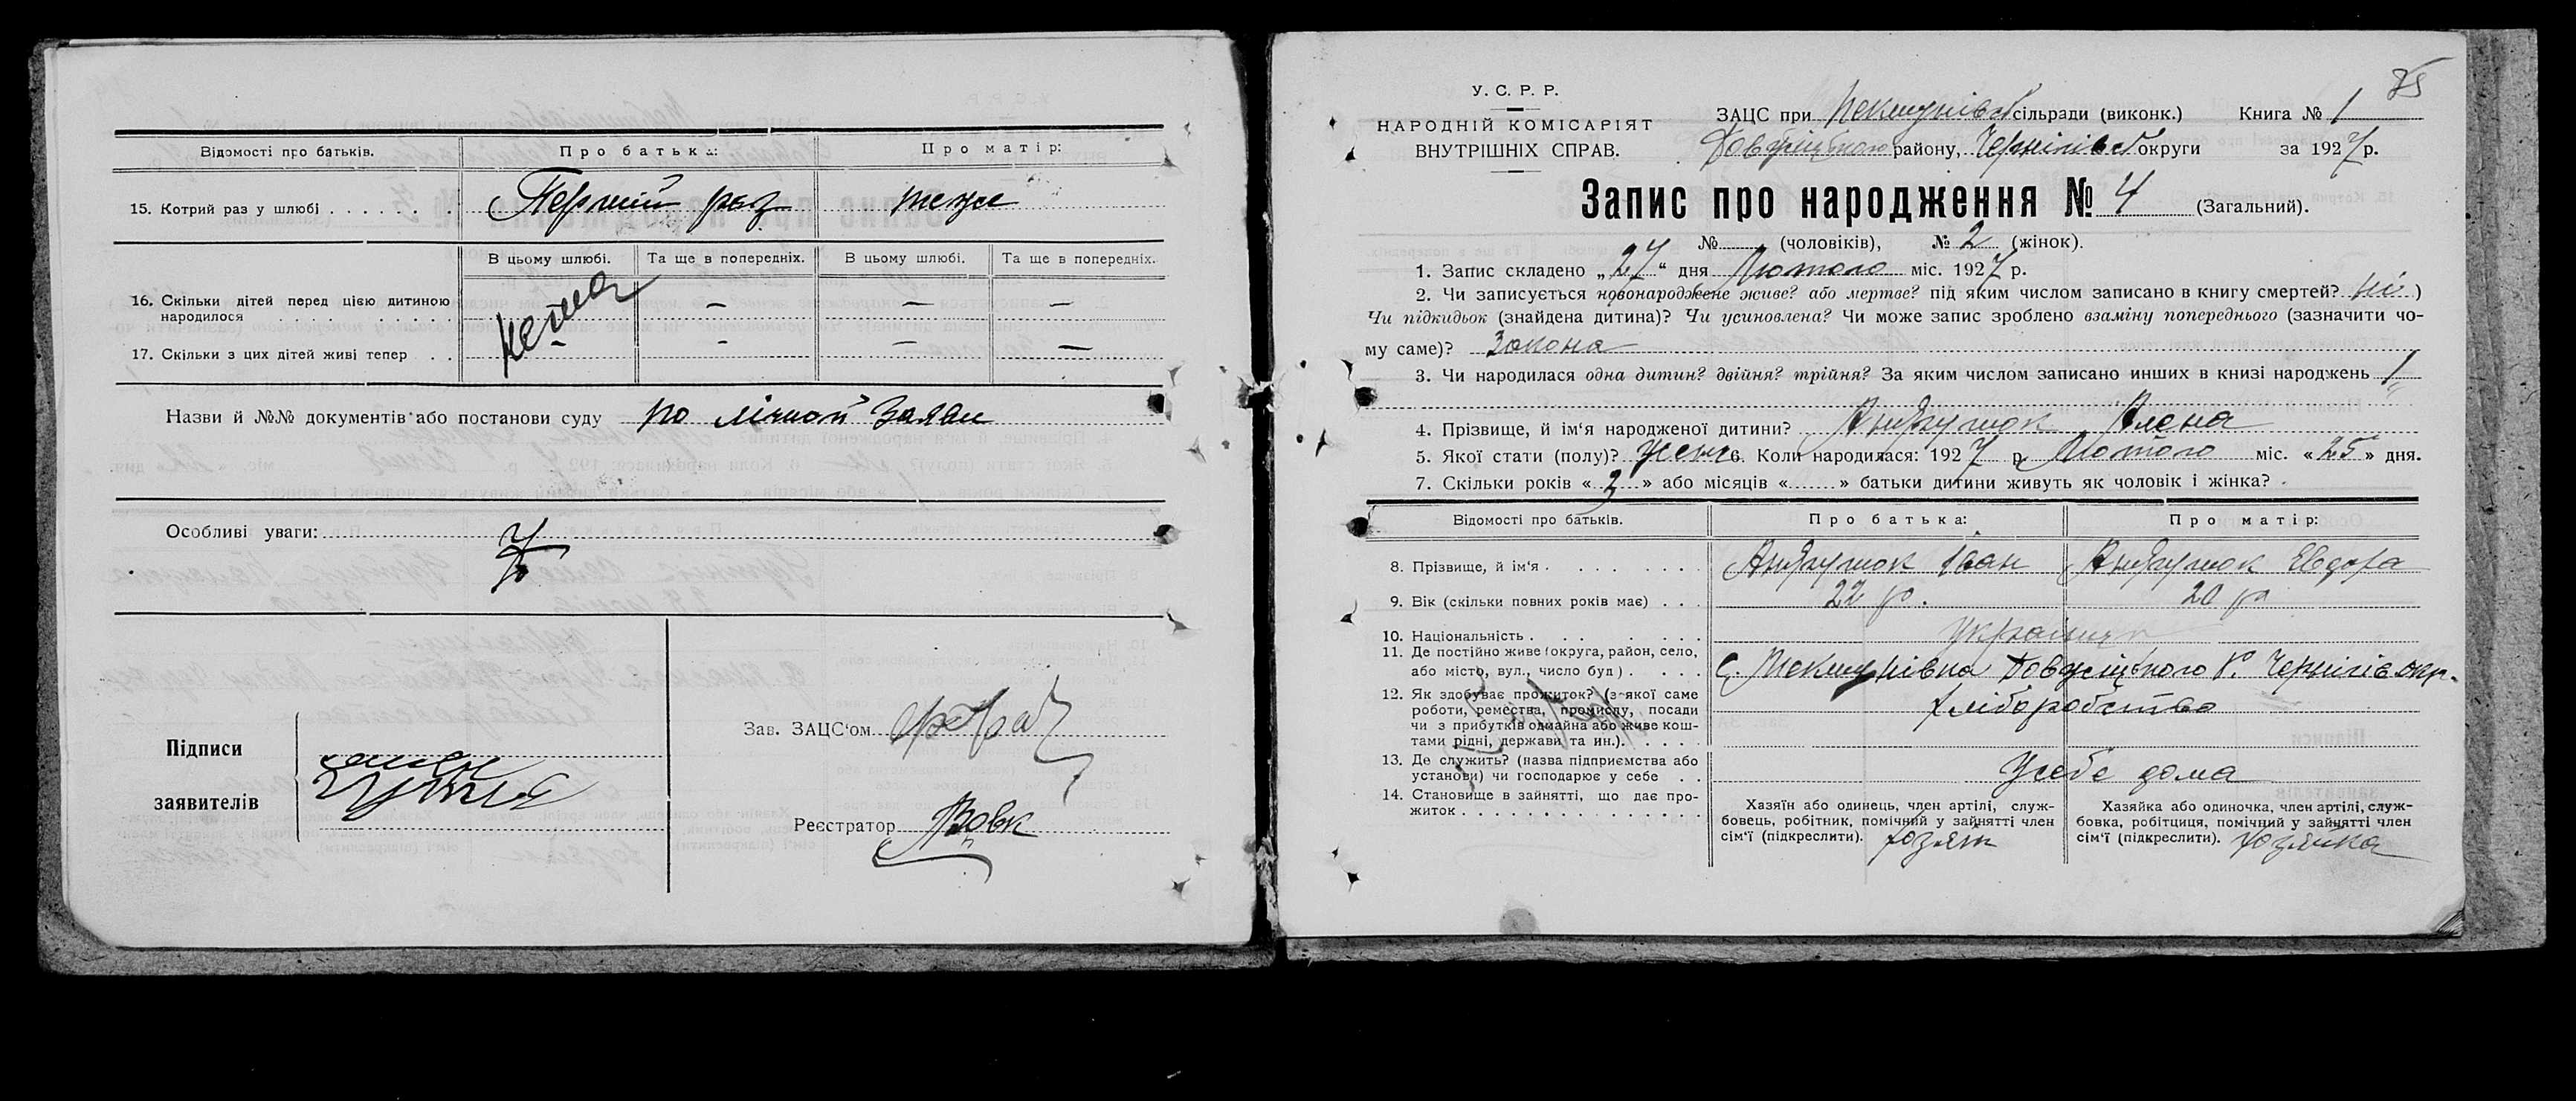 Відомості про батьків.
Про батька:
Про матір:
15. Котрий раз у шлюбі
Перший раз
теж
В цьому шлюбі.
Та ще в попередніх.
В цьому шлюбі.
Та ще в попередніх.
16. Скільки дітей перед цією дитиною
народилося
нема
—
—
—
17. Скільки з цих дітей живі тепер
-
—
—
Назви й №№ документів або постанови суду по
Особливі уваги:
Підписи
заявителів
Зав. ЗАЦС'ом
Реєстратор Вовк
85
У. С. Р. Р.
НАРОДНІЙ КОМІСАРІЯТ
ВНУТРІШНІХ СПРАВ.
ЗАЦС при сільради (виконк.) Книга № 1
району, Чернігівс округи за 1927 р.
Запис про народження № 4 (Загальний).
№ (чоловіків), № 2 (жінок).
1. Запис складено „27“ дня Лютого міс. 1927 р.
2. Чи записується новонароджене живе? або мертве? під яким числом записано в книгу смертей? ні )
Чи підкидьок (знайдена дитина)? Чи усиновлена? Чи може запис зроблено взаміну попереднього (зазначити чо-
му саме)? Законна
3. Чи народилася одна дитин? двійня? трійня? За яким числом записано инших в книзі народжень 1
4. Прізвище, й ім'я народженої дитини? Андрушок Алена
5. Якої стати (полу)? жен 6. Коли народилася: 1927 р. Лютого міс. «25» дня.
7. Скільки років «2» або місяців « » батьки дитини живуть як чоловік і жінка?
Відомості про батьків.
Про батька:
Про матір:
8. Прізвище, й ім'я
Андрушок Іван
Андрушок Евдора
9. Вік (скільки повних років має)
22 р.
20 р
10. Національність
українці
11. Де постійно живе (округа, район, село,
або місто, вул., число буд)
с. р. Чернігів окр.
12. Як здобуває прожиток? (з якої саме
роботи, ремества, промислу, посади
чи з прибутків одмайна або живе кош-
тами рідні, держави та ин.).
хліборобство
13. Де служить? (назва підприємства або
установи) чи господарює у себе
У себе дома
14. Становище в зайнятті, що дає про-
житок
Хазяїн або одинець, член артілі, служ-
бовець, робітник, помічний у зайнятті член
сім'ї (підкреслити). хозяін
Хазяйка або одиночка, член артілі, служ-
бовка, робітниця, помічний у зайнятті член
сім'ї (підкреслити). хозяйка